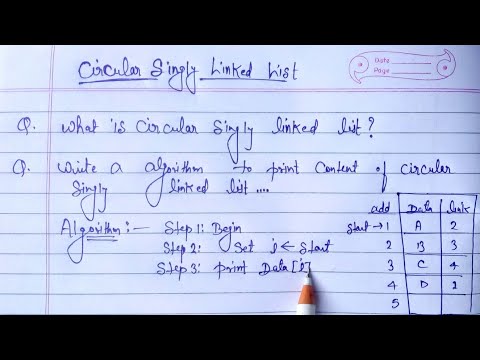 Circular Singly Linked List
Date
Page
Q. What is circular singly linked list?
Q. Write a algorithm to print content of circular
singly linked list....
Algorithm:- Step 1: Begin
Step 2: Set i ← Start
Step 3: print Data[i]
add Data link
Start → 1 A 2
2 B 3
3 C 4
4 D 1
5